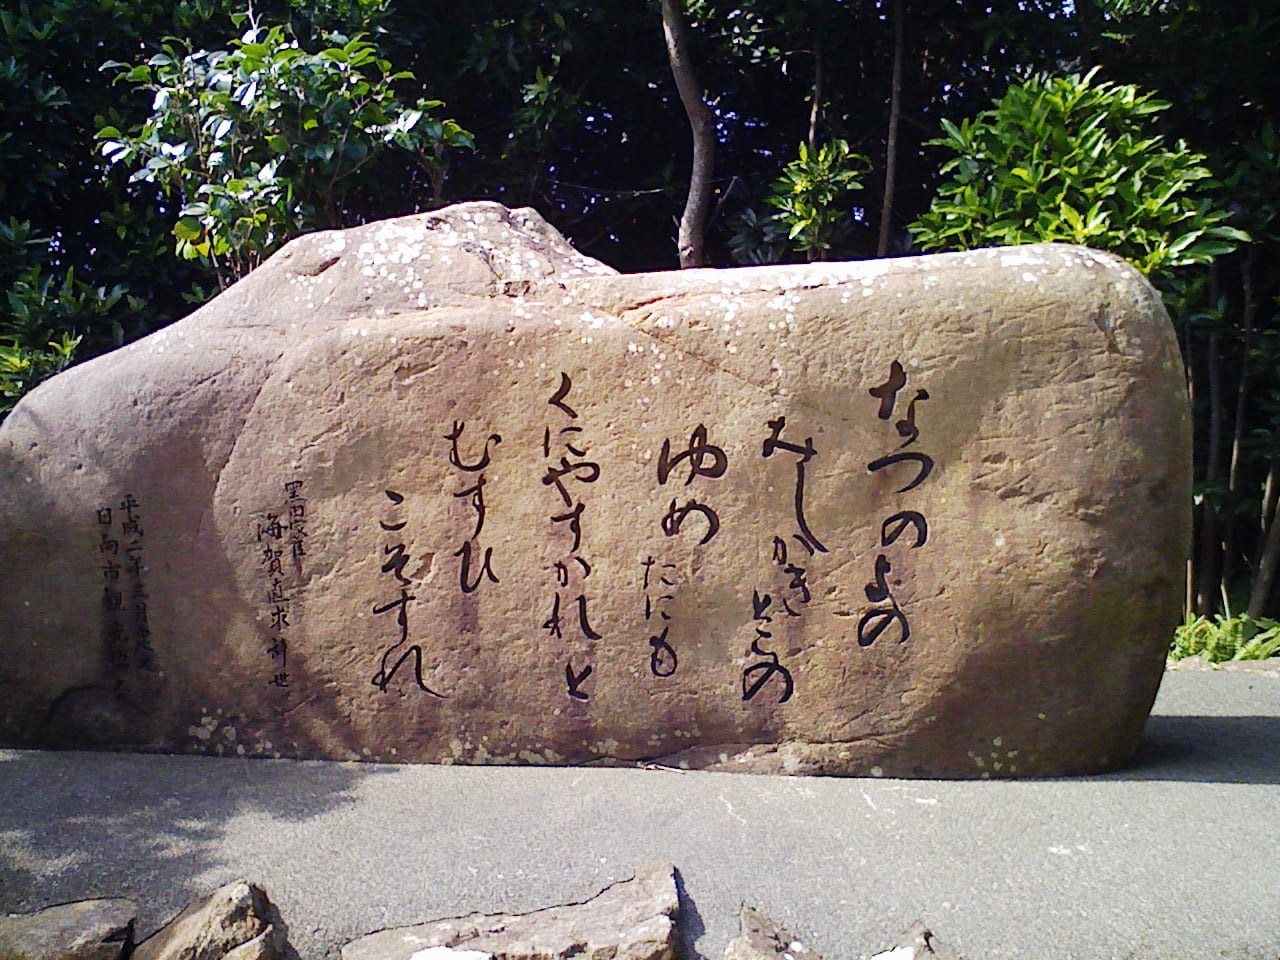 なつのよの
みしかきとこの
ゆめたにも
くにやすかれと
むすひ
こそすれ
黒田家臣
海賀直求辞世
平成二年三月建之
日向市観光協会